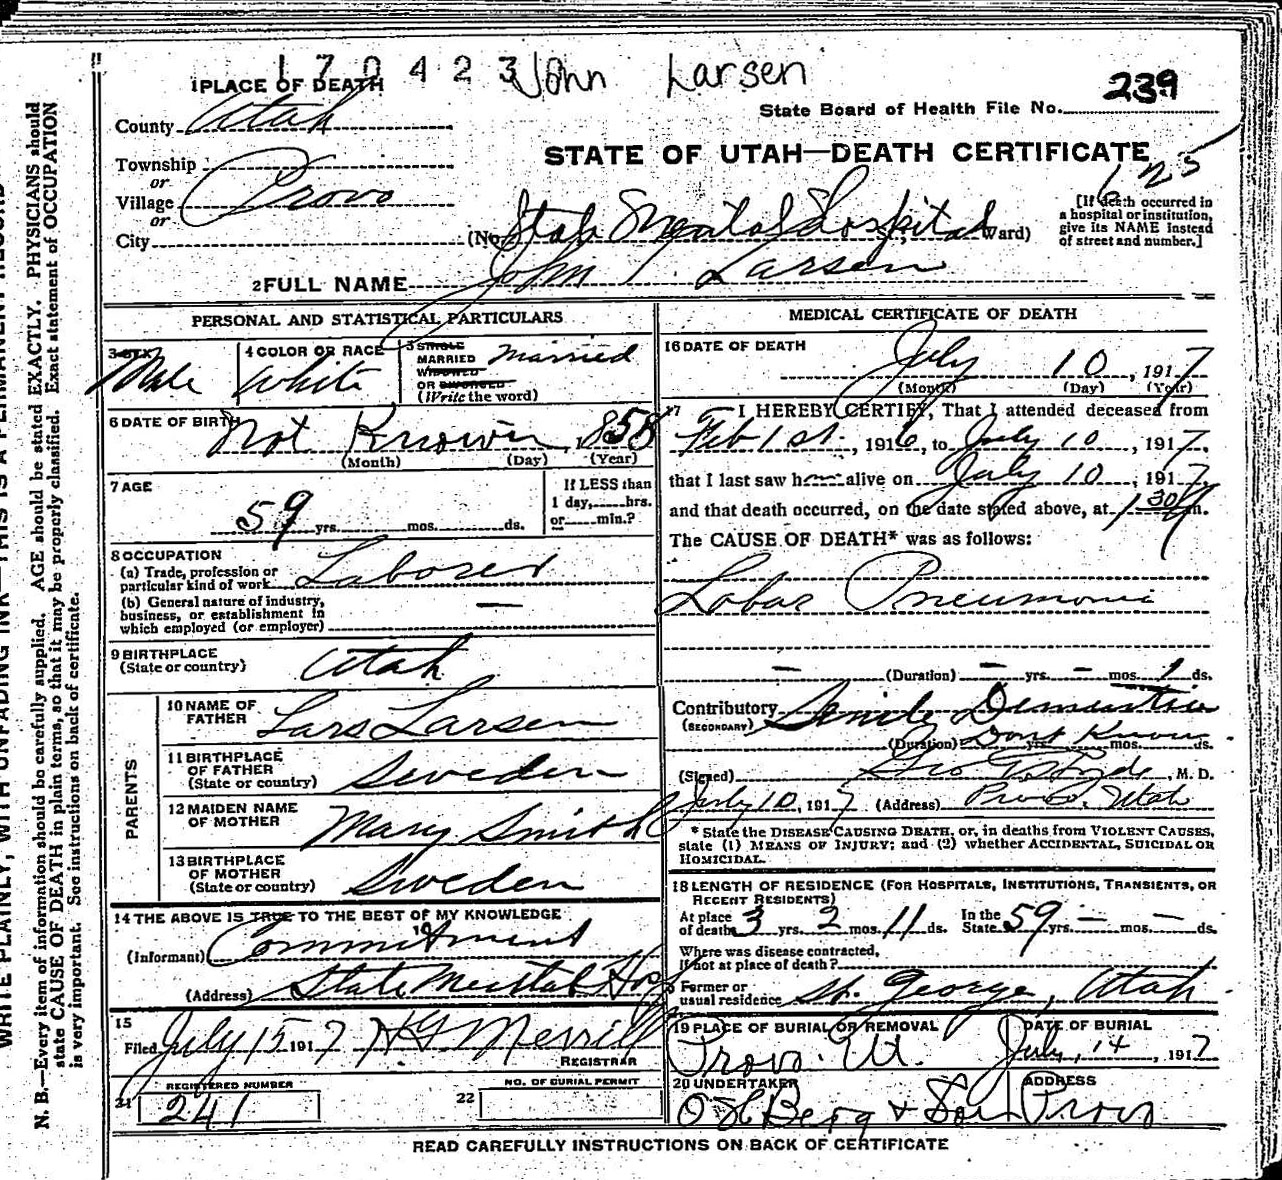 170423 John Larsen
1 PLACE OF DEATH
239
State Board of Health File No.
County Utah
STATE OF UTAH—DEATH CERTIFICATE
Township
or
Village Provo
or
City
(No. Utah Mental Hospital St., Ward)
[If death occurred in
a hospital or institution,
give its NAME instead
of street and number.]
2 FULL NAME John Larsen
PERSONAL AND STATISTICAL PARTICULARS
3 SEX Male
4 COLOR OR RACE White
5 SINGLE
MARRIED Married
WIDOWED
OR DIVORCED
(Write the word)
6 DATE OF BIRTH Not Known, 1858
(Month) (Day) (Year)
7 AGE
59 yrs. mos. ds.
If LESS than
1 day, hrs.
or min.?
8 OCCUPATION
(a) Trade, profession or
particular kind of work Laborer
(b) General nature of industry,
business, or establishment in
which employed (or employer) —
9 BIRTHPLACE
(State or country) Utah
PARENTS
10 NAME OF
FATHER Lars Larsen
11 BIRTHPLACE
OF FATHER
(State or country) Sweden
12 MAIDEN NAME
OF MOTHER Mary Smith
13 BIRTHPLACE
OF MOTHER
(State or country) Sweden
14 THE ABOVE IS TRUE TO THE BEST OF MY KNOWLEDGE
(Informant) Commitment
(Address) State Mental Hosp
15
Filed July 15 1917 Merrill
REGISTRAR
REGISTERED NUMBER
21 241
22 NO. OF BURIAL PERMIT
MEDICAL CERTIFICATE OF DEATH
16 DATE OF DEATH
July 10, 1917
(Month) (Day) (Year)
17 I HEREBY CERTIFY, That I attended deceased from
Feb 1st, 1916, to July 10, 1917,
that I last saw h alive on July 10, 1917
and that death occurred, on the date stated above, at 1 30 m.
The CAUSE OF DEATH* was as follows:
Lobar Pneumonia
— (Duration) — yrs. — mos. 1 ds.
Contributory Senile Dementia
(SECONDARY)
(Duration) Dont Know yrs. mos. ds.
(Signed) Geo. T. Hyde, M. D.
July 10, 1917 (Address) Provo, Utah
* State the DISEASE CAUSING DEATH, or, in deaths from VIOLENT CAUSES,
state (1) MEANS OF INJURY; and (2) whether ACCIDENTAL, SUICIDAL OR
HOMICIDAL.
18 LENGTH OF RESIDENCE (FOR HOSPITALS, INSTITUTIONS, TRANSIENTS, OR
RECENT RESIDENTS)
At place
of death 3 yrs. 2 mos. 11 ds.
In the
State 59 yrs. — mos. — ds.
Where was disease contracted,
If not at place of death?
Former or
usual residence St. George, Utah
19 PLACE OF BURIAL OR REMOVAL
Provo, Ut.
DATE OF BURIAL
July, 14, 1917
20 UNDERTAKER
Berg & Son
ADDRESS
Provo
READ CAREFULLY INSTRUCTIONS ON BACK OF CERTIFICATE
N. B.—Every item of information should be carefully supplied. AGE should be stated EXACTLY. PHYSICIANS should
state CAUSE OF DEATH in plain terms, so that it may be properly classified. Exact statement of OCCUPATION
is very important. See instructions on back of certificate.